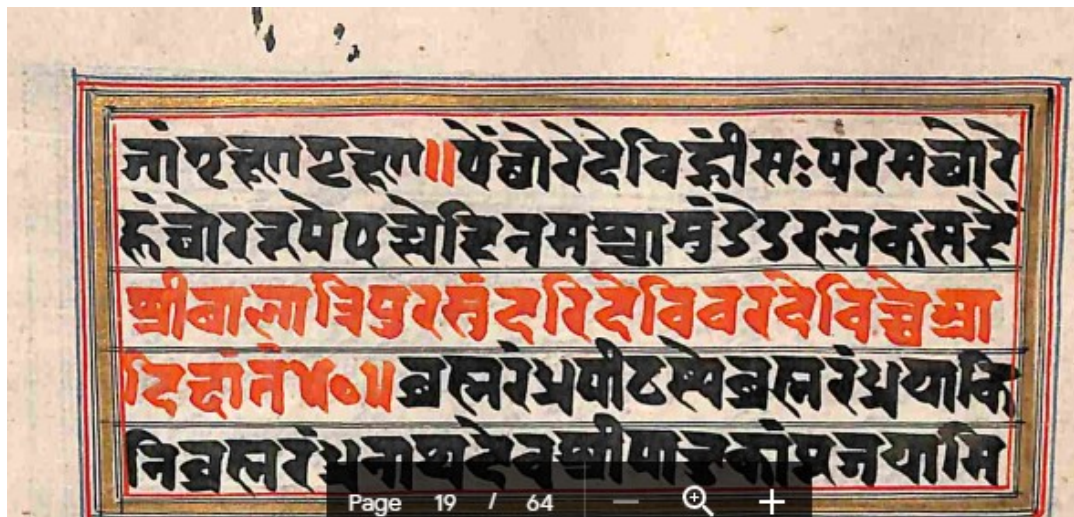 जां गृह्ण गृह्ण॥ ऐं घोरे देवि ह्रीं सः परम घोरे
हुं घोर रूपे एह्येहि नमश्चामुंडे डरलकसहैं
श्री बाला त्रिपुर सुंदरि देवि वरदे विच्चे
ब्रह्मरंध्र पीठस्थे ब्रह्मरंध्र याकि
नि ब्रह्मरंध्र नाथ देव श्रीपादुकां पूजयामि
Page 19 / 64